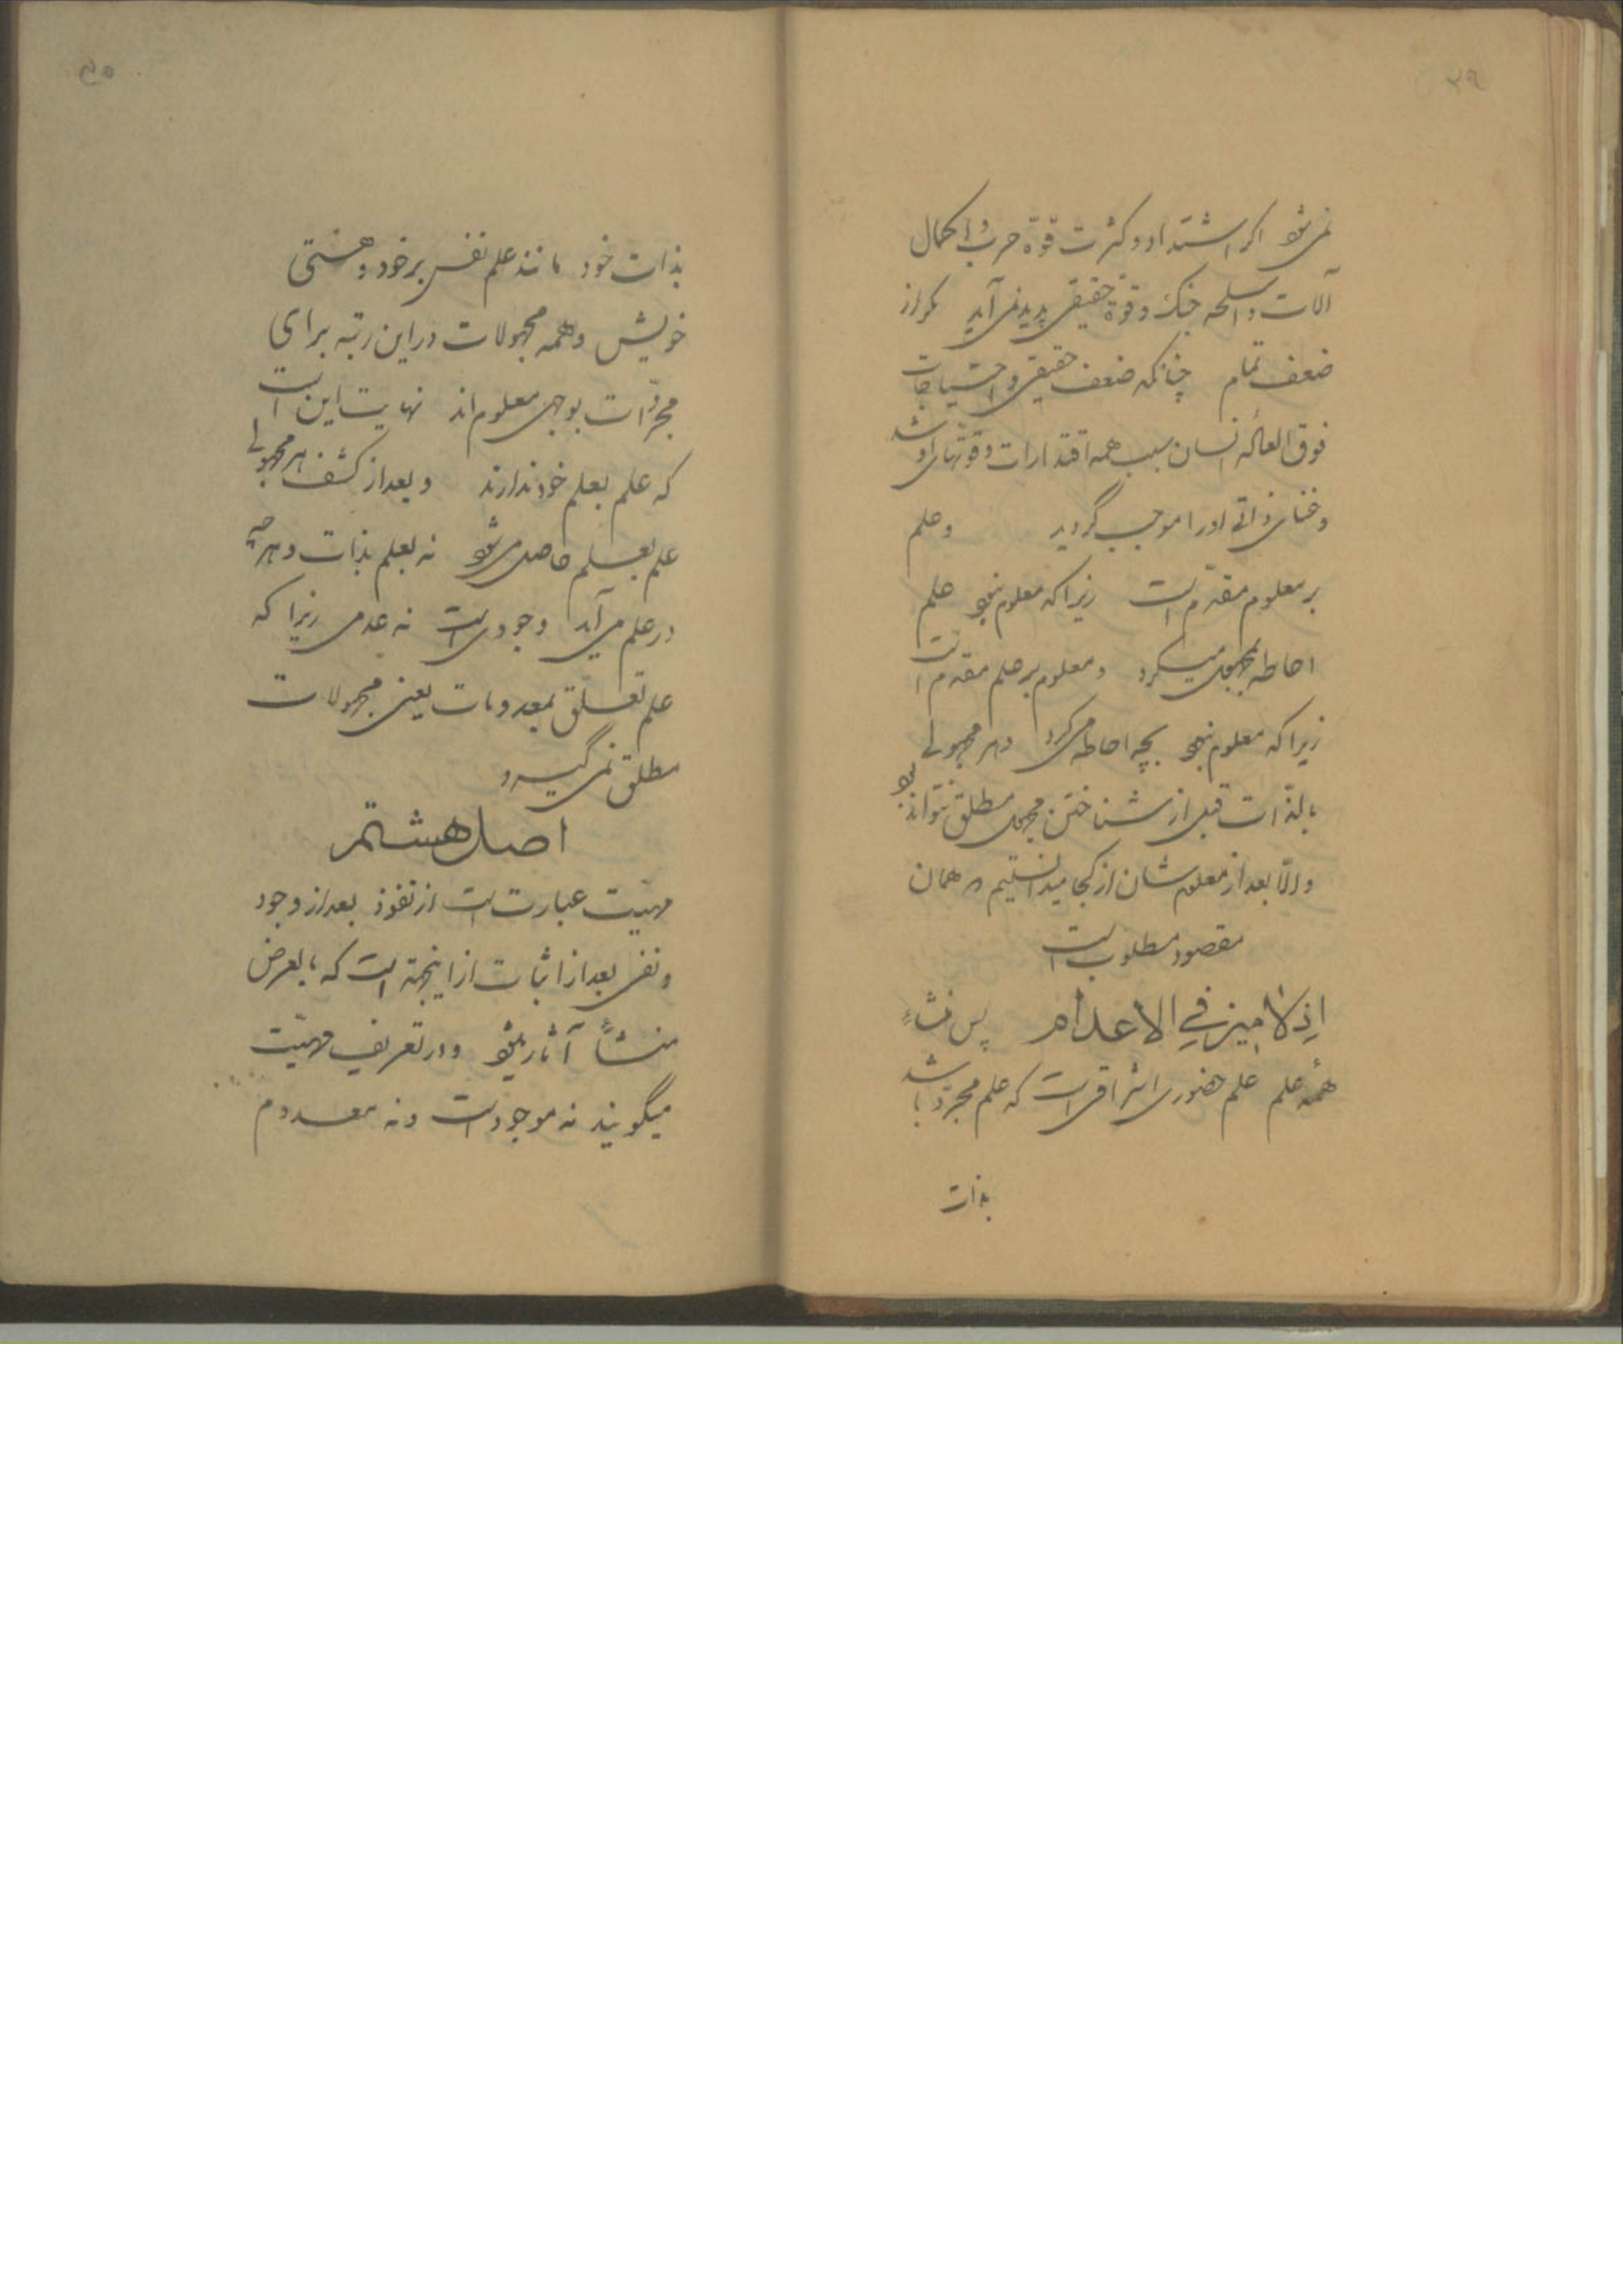 ۳۹
نمی‌شود اگر اشتداد و کثرت قوهٔ حرب و اکمال
آلات و اسلحه جنک و قوة حقیقی پدید نمی‌آید مگر از
ضعف تمام چنانکه ضعف حقیقی و احتیاجات
فوق العاده انسان سبب همه اقتدارات و قوتهای او شد
و غنای ذاتی او را موجب گردید و علم
بر معلوم مقدم است زیرا که معلوم نبود علم
احاطه بمجهول میکرد و معلوم بر علم مقدم است
زیرا که معلوم نبود بچه احاطه می‌کرد و هر مجهولی
بالذّات قبل از شناختن مجهول مطلق نتواند بود
و الّا بعد از معلوم شدن از کجا میدانستیم که همان
مقصود مطلوب است
اذ لا میز فی الاعدام پس منشاء
همهٔ علم علم حضوری اشراقی است که علم مجرد باشد
بذات
۴۰
بذات خود مانند علم نفس بر خود و هستی
خویش و همه مجهولات در این رتبه برای
مجرّدات بوجهی معلوم‌اند نهایت این است
که علم بعلم خود ندارند و بعد از کشف هر مجهولی
علم بعلم حاصل می‌شود نه بعلم بذات و هر چه
در علم می‌آید وجودی است نه عدمی زیرا که
علم تعلّق بمعدومات یعنی مجهولات
مطلق نمی‌گیرد
اصل هشتم
مهیّت عبارت است از نفوذ بعد از وجود
و نفی بعد از اثبات از اینجهة است که بالعرض
منشأ آثار میشود و در تعریف مهیّت
میگویند نه موجود است و نه معدوم